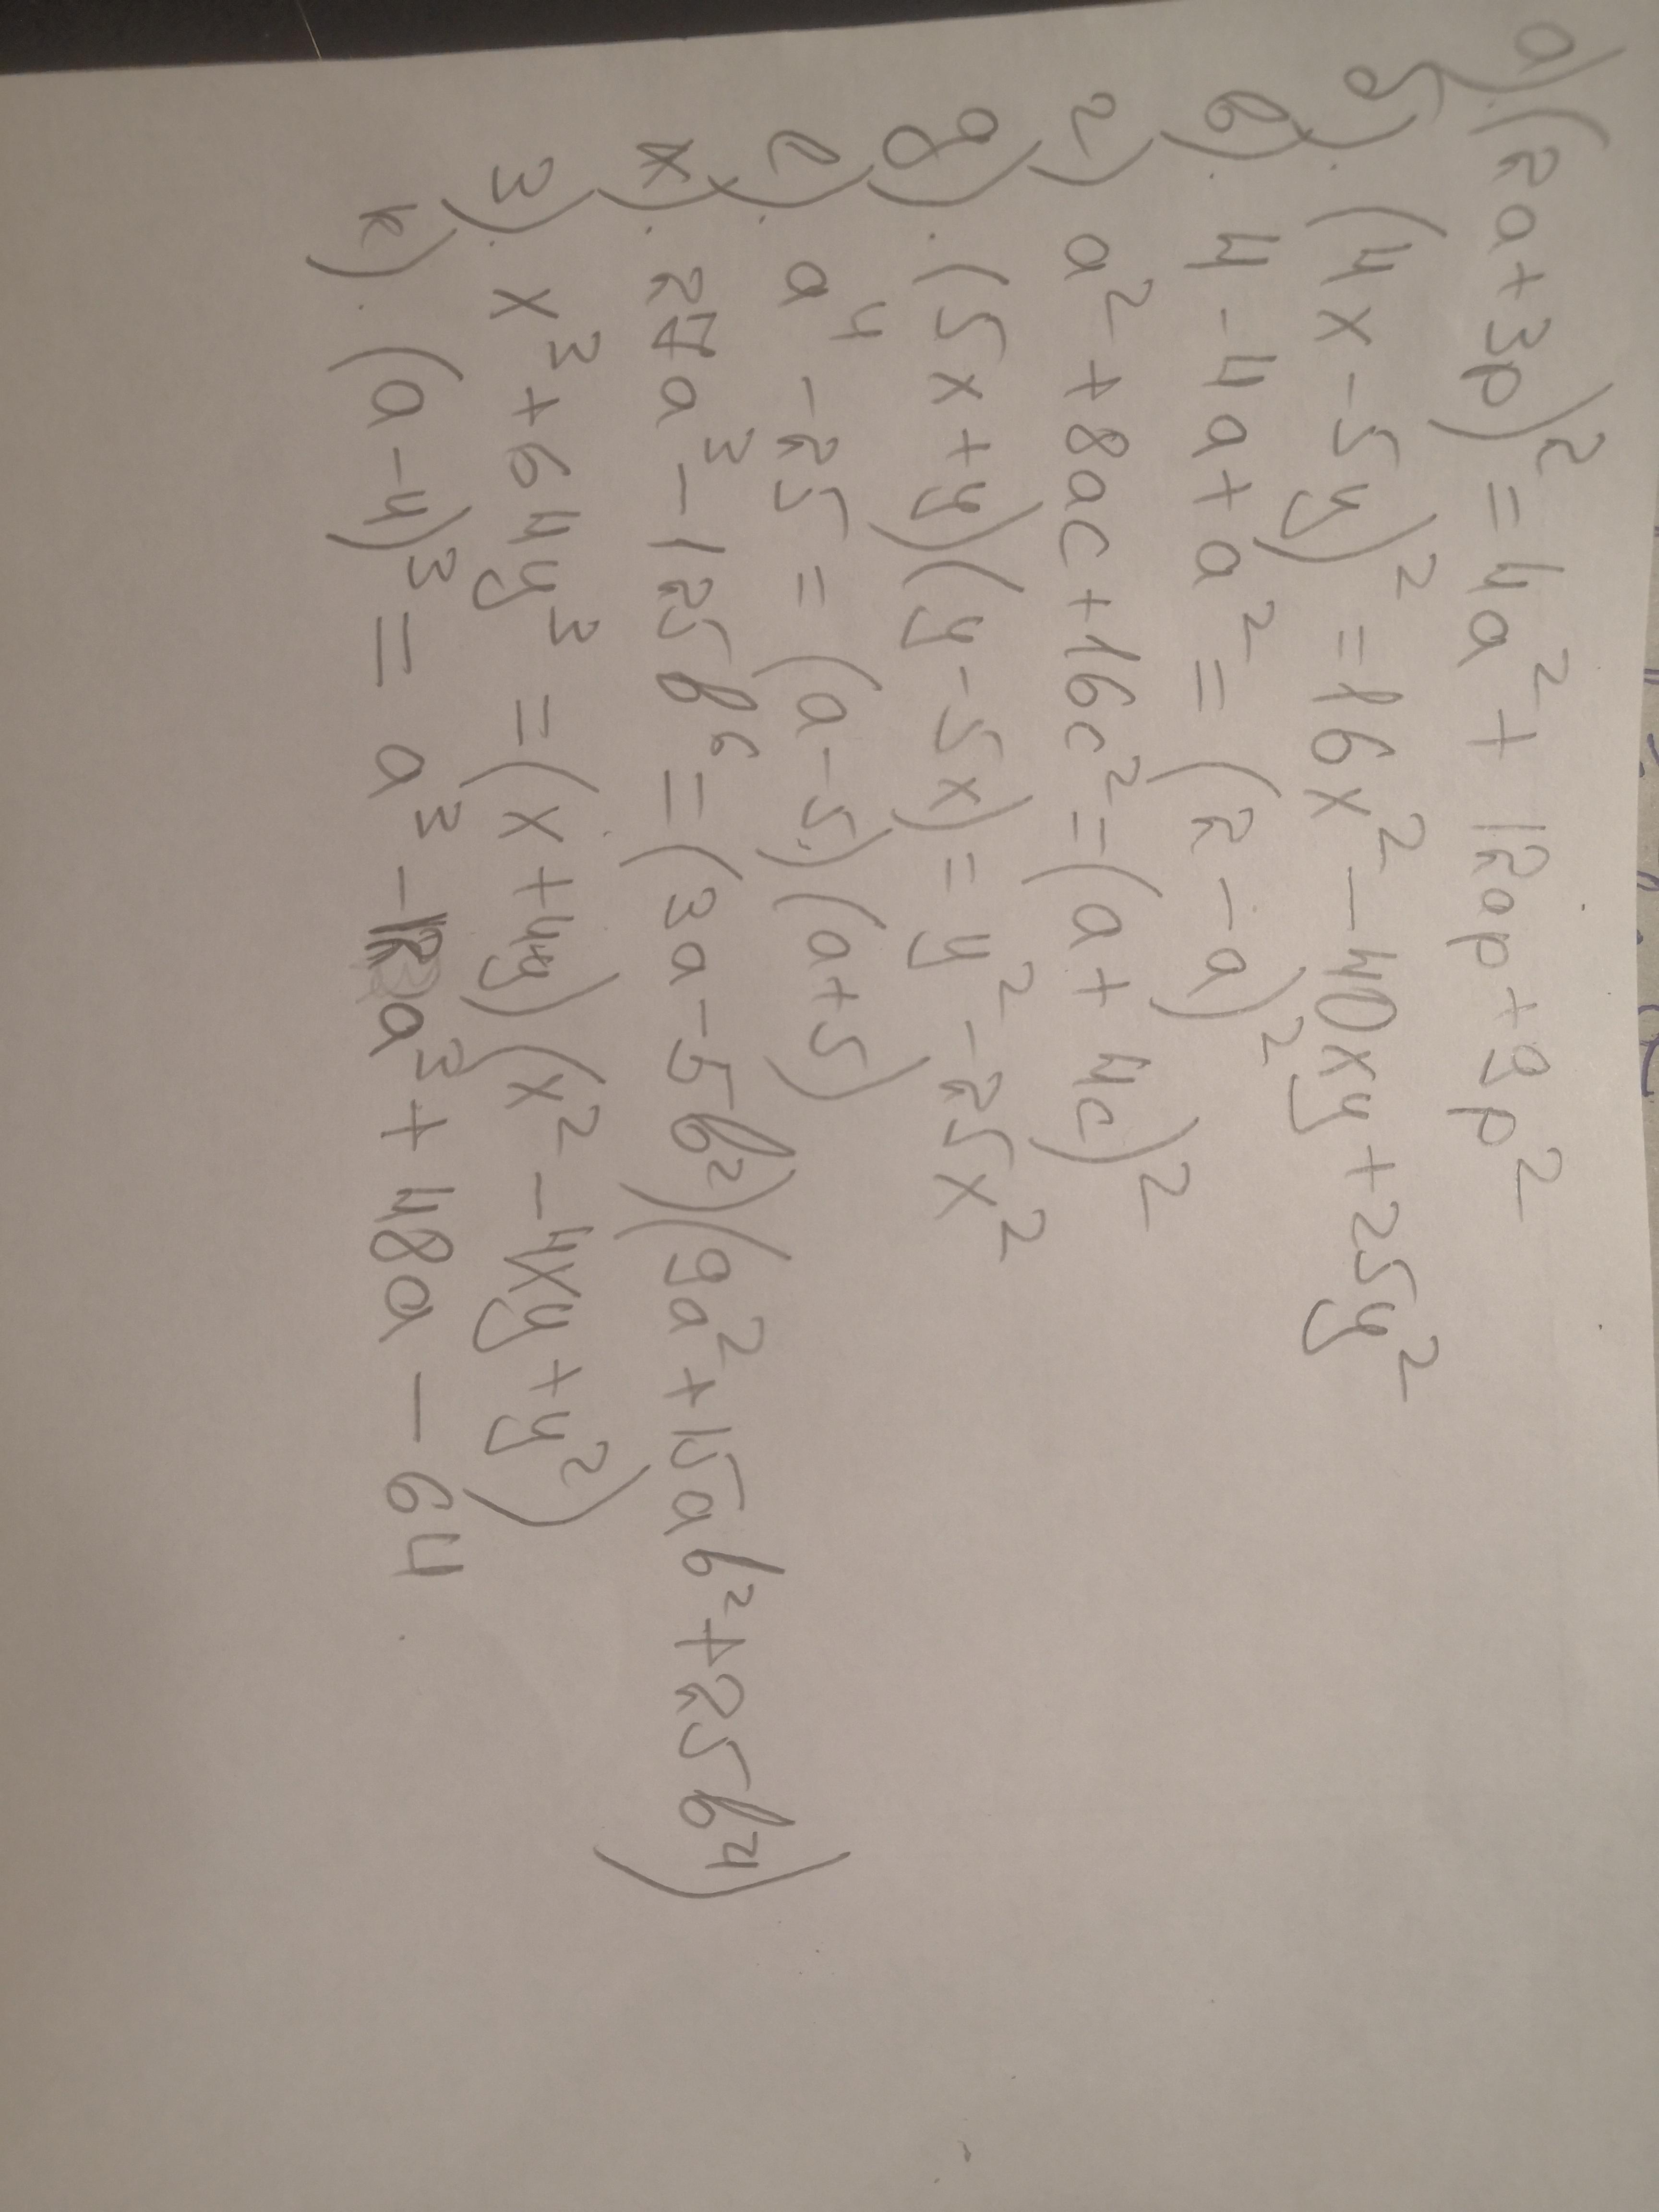 а). (2a+3p)² = 4a² + 12ap + 9p²
б). (4x - 5y)² = 16x² - 40xy + 25y²
в). 4 - 4a + a² = (2 - a)²
г) a² + 8ac + 16c² = (a + 4c)²
д). (5x + y)(y - 5x) = y² - 25x²
е). a⁴ - 25 = (a - 5)(a + 5)
ж). 27a³ - 125b⁶ = (3a - 5b²)(9a² + 15ab² + 25b⁴)
з). x³ + 64y³ = (x + 4y)(x² - 4xy + y²)
к). (a - 4)³ = a³ - 12a³ + 48a - 64